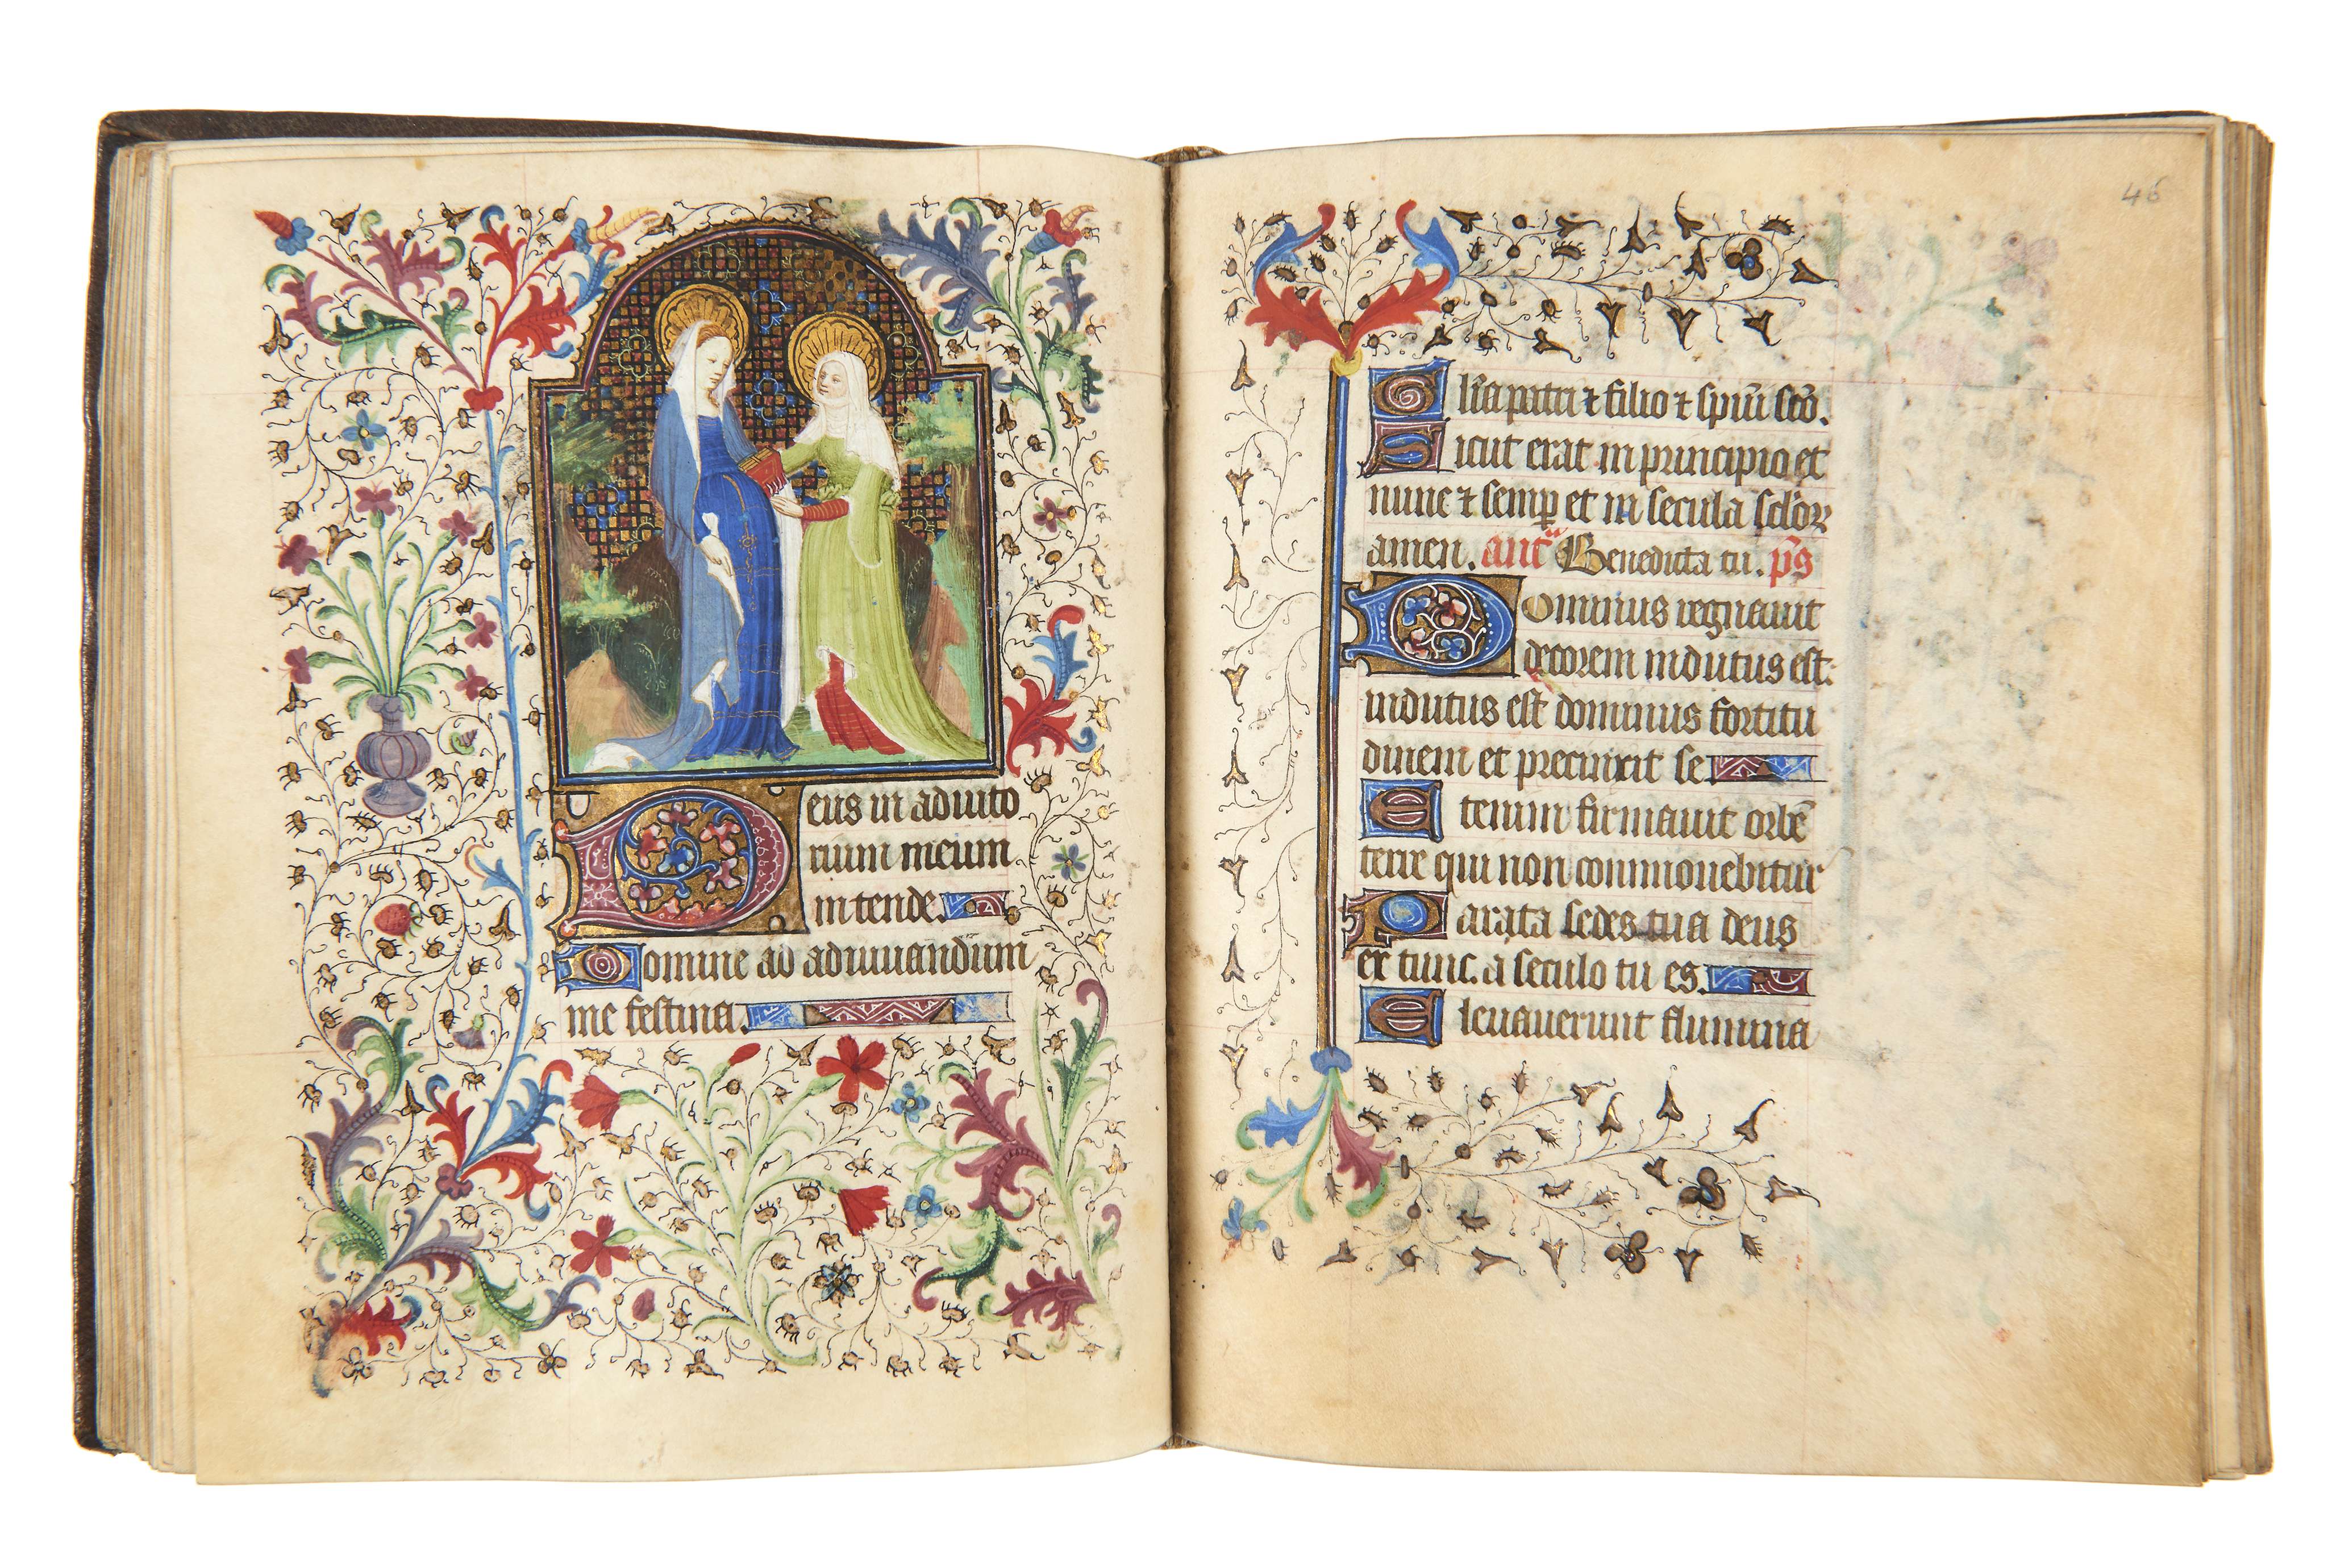 Deus in adiuto
rium meum
intende.
Domine ad adiuuandum
me festina.
46
Gl'ia patri ⁊ filio ⁊ spiũ scõ.
Sicut erat in principio et
nunc ⁊ semꝑ et in secula sclõꝝ
amen. antᵃ Benedicta tu. p̃s
Dominus regnauit
decorem indutus est:
indutus est dominus fortitu
dinem et precinxit se
Etenim firmauit orbẽ
terre qui non commouebitur
Parata sedes tua deus
ex tunc. a seculo tu es.
Eleuauerunt flumina